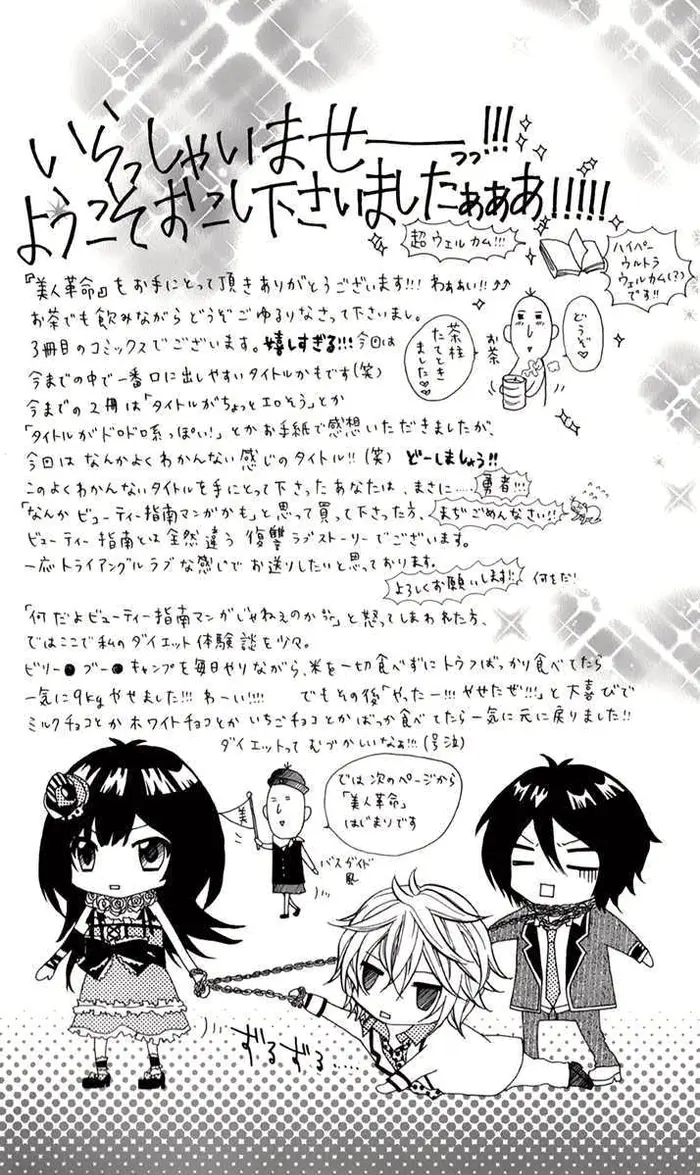 いらっしゃいませ――っっ!!!
ようこそおこし下さいましたぁぁあ!!!!!
超ウェルカム!!!
ハイパー
ウルトラ
ウェルカム(?)
です!!
『美人革命』をお手にとって頂きありがとうございます!!! わぁぁい!!
お茶でも飲みながらどうぞごゆるりなさって下さいまし。
3冊目のコミックスでございます。嬉しすぎる!!! 今回は
今までの中で一番口に出しやすいタイトルかもです(笑)
今までの2冊は「タイトルがちょっとエロそう」とか
「タイトルがドロドロ系っぽい!」とかお手紙で感想いただきましたが、
今回はなんかよくわかんない感じのタイトル!!(笑) どーしましょう!!
どうぞ♡
お茶
茶柱
たてとき
ました♡
このよくわかんないタイトルを手にとって下さったあなたは、まさに……勇者!!!
「なんかビューティー指南マンガかも」と思って買って下さった方、まぢごめんなさい!!
ビューティー指南とは全然違う復讐ラブストーリーでございます。
一応トライアングルラブな感じでお送りしたいと思っております。
よろしくお願いします!!
何をだ!
「何だよビューティー指南マンガじゃねえのか」と怒ってしまわれた方、
ではここで私のダイエット体験談を少々。
ビリー●ブー●キャンプを毎日やりながら、米を一切食べずにトウフばっかり食べてたら
一気に9kgやせました!!! わーい!!!! でもその後「やったー!!! やせたぜ!!!」と大喜びで
ミルクチョコとかホワイトチョコとかいちごチョコとかばっか食べてたら一気に元に戻りました!!
ダイエットってむづかしいなぁ!!!(号泣)
では次のページから
「美人革命」
はじまりです
美
バスガイド
風
ずるずる……